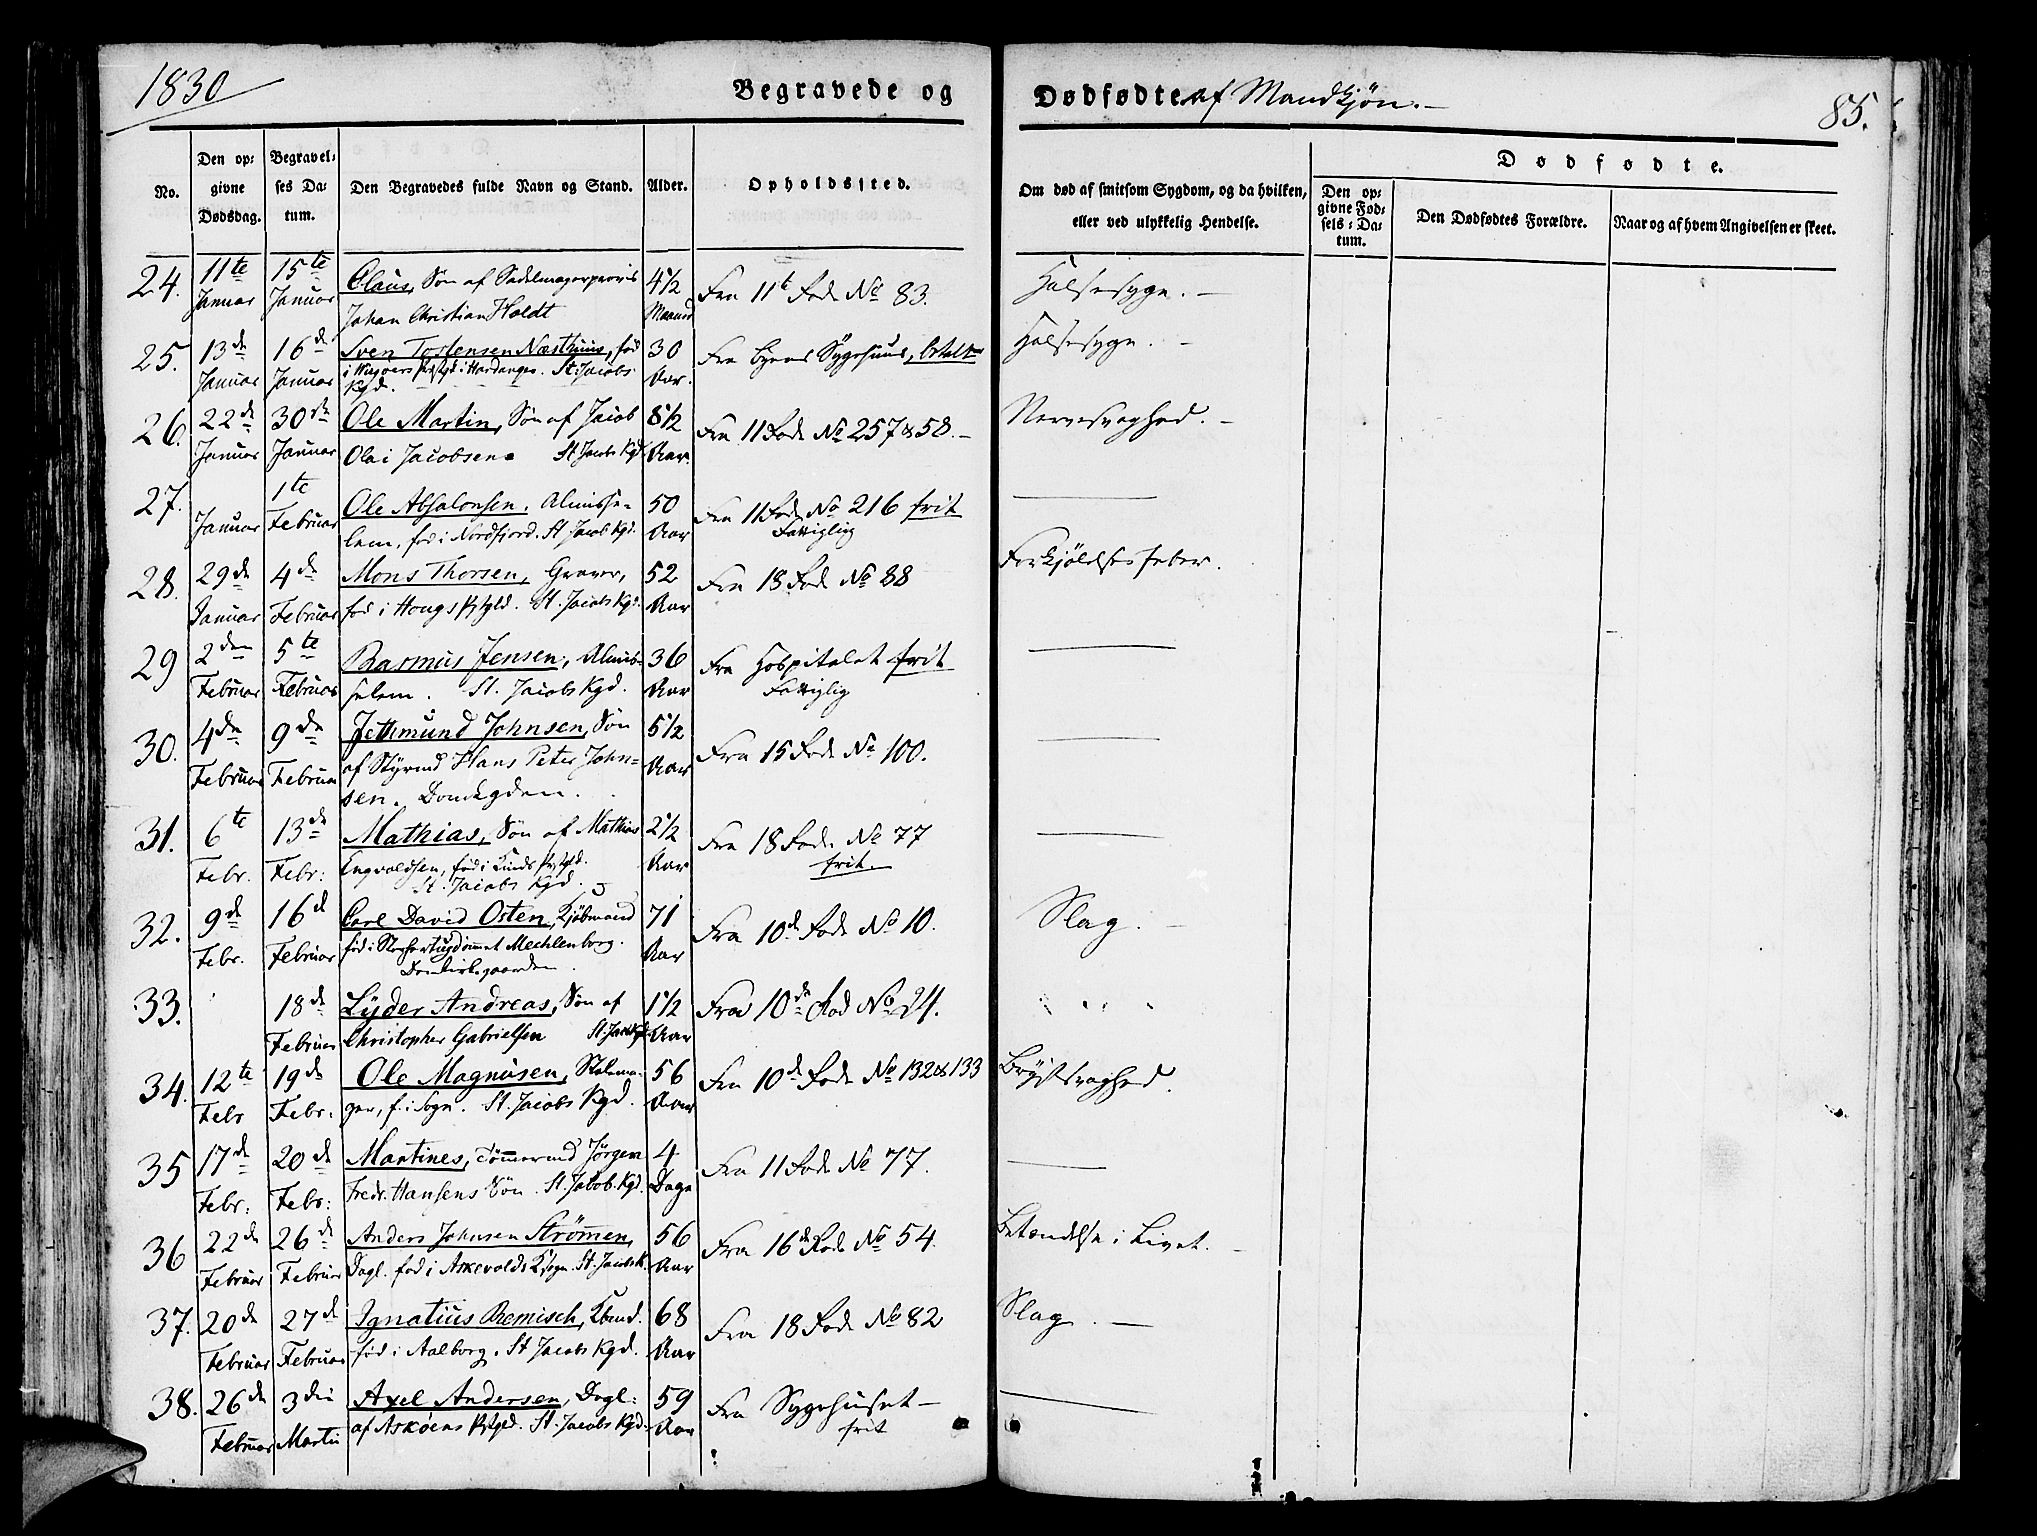 1830
Begravede og
Dødfødte af Mandkjøn.
85.
No.
Den op-
givne
Dødsdag.
Begravel-
ses Da-
tum.
Den Begravedes fulde Navn og Stand.
Alder.
Opholdssted.
Om død af smitsom Sygdom, og da hvilken,
eller ved ulykkelig Hendelse.
Dødfødte.
Den op-
givne Fød-
sels-Da-
tum.
Den Dødfødtes Forældre.
Naar og af hvem Angivelsen er skeet.
24. 11te Januar 15te Januar Claus, Søn af Sadelmager
Johan Christian Holdt 4 1/2 Maaned Fra 11t Rode No 83. Halsesyge.
25. 13de Januar 16de Januar Sven Tostensen Næsthuus, fød
i Præstgd i Hardanger. St. Jacobs
Kgd. 30 Aar. Fra Byens Sygehuus, betalt Halsesyge.
26. 22de Januar 30de Januar Ole Martin, Søn af Jacob
Olai Jacobsen St Jacobs Kgd 8 1/2 Aar. Fra 11 Rode No 257 & 58. Nervesvaghed.
27. Januar 1te Februar Ole Absalonsen, Almisse-
lem, fød i Nordfjord. St Jacob Kgd. 50 Aar Fra 11 Rode No 216 frit
Fattiglig
28. 29de Januar 4de Februar Mons Thorsen, Graver,
fød i Hougs Prstgld. St. Jacobs Kgd. 52 Aar Fra 18 Rode No 88 Forkjølelsesfeber.
29 2den Februar 5te Februar Rasmus Jensen, Almis-
selem. St. Jacobs Kgd. 36 Aar Fra Hospitalet frit
Fattiglig
30. 4de Februar 9de Februar Jethmund Johnsen, Søn
af Styrmd Hans Peter John-
sen. Domkgden. 5 1/2 Aar Fra 15 Rode No 100.
31. 6te Febr. 13de Febr: Mathias, Søn af Mathias
Engvoldsen, fød i Kinds Prstgld.
St. Jacobs Kgd. 2 1/2 Aar Fra 18 Rode No 77
frit.
32. 9de Febr. 16d Februar Carl David Osten, Kjøbmand
fød i Storhertugdømmet Mechlenborg.
Domkirkegaarden. 71 Aar Fra 10de Rode No 10. Slag.
33. 18de Februar Lyder Andreas, Søn af
Christopher Gabrielsen St. Jacobs Kgd 1 1/2 Aar Fra 10de Rod No 24.
34. 12te Febr 19de Febr: Ole Magnusen, Stolema-
ger, f. i Sogn. St. Jacobs Kgd. 56 Aar Fra 10de Rode No 132 & 133 Brystsvaghed.
35 17de Febr: 20de Febr: Martines, Tømmermd Jørgen
Fredr. Hansens Søn. St. Jacob. Kgd. 4 Dage Fra 11 Rode No 77.
36 22de Februar 26de Februar Anders Johnsen Strømmen,
Dagl. fød i Askevolds Ksogn. St. Jacobs K. 56 Aar Fra 16de Rode No 54. Betændelse i Livet.
37. 20de Februar 27de Februar Ignatius Remisch, Kbmd.
fød i Aalborg. St Jacobs Kgd. 68 Aar Fra 18 Rode No 82 Slag.
38. 26de Februar 3die Martii Axel Andersen, Dagl:
af Askøens Prstgld. St. Jacobs Kgd. 59 Aar Fra Sygehuset
frit